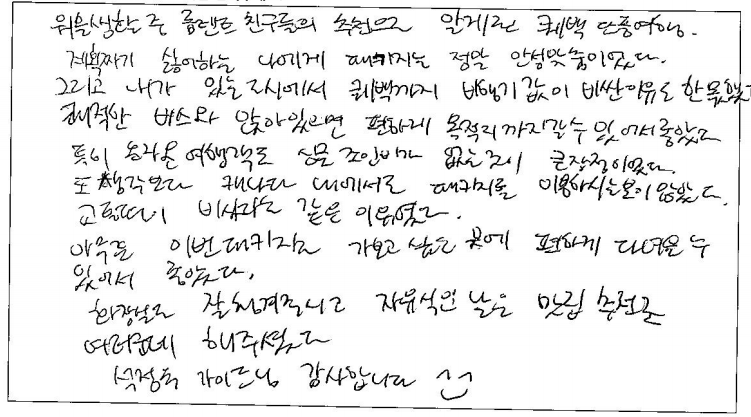 워홀생활 중 룸렌트 친구들의 추천으로 알게된 퀘백 단풍여행.
계획짜기 싫어하는 나에게 패키지는 정말 안성맞춤이었다.
그리고 내가 있는 도시에서 퀘백까지 비행기 값이 비싼이유도 한몫했고
쾌적한 버스와 앉아있으면 편하게 목적지까지 갈수 있어서 좋았고
특히 혼자온 여행객도 싱글 조인비가 없는것이 큰장점이었다.
또 생각보다 캐나다 내에서도 패키지를 이용하시는분이 많았다.
교통비가 비싸다는 같은 이유였고.
아무튼 이번 패키지로 가보고 싶은 곳에 편하게 다녀올 수
있어서 좋았다.
잘 챙겨주시고 자유식인 날은 맛집 추천을
여러군데 해주셨다
가이드님 감사합니다